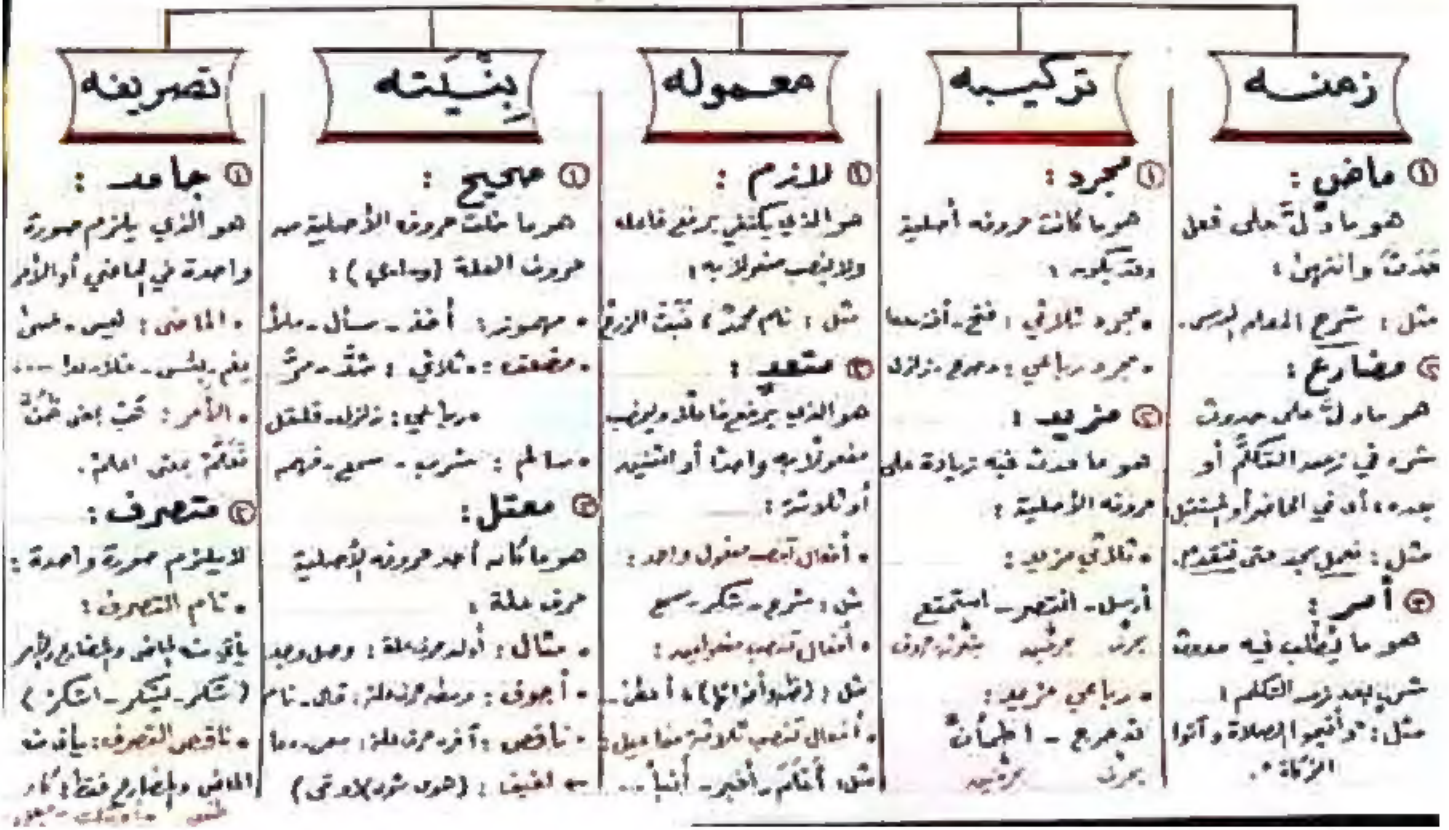 زمنه
① ماضٍ :
هو ما دلّ على فعل
حَدَثَ وانتهى :
مثل : شرح المعلم الدرس .
② مضارع :
هو ما دلّ على حدوث
شيء في زمن التكلّم أو
بعده ، أي في الحاضر أو المستقبل
مثل : نعمل بجد حتى نتقدم .
③ أمر :
هو ما يُطلب فيه حدوث
شيء بعد زمن التكلم :
مثل : " وأقيموا الصلاة وآتوا
الزكاة " .
تركيبه
① مجرد :
هو ما كانت حروفه أصلية
وقد يكون :
• مجرد ثلاثي : فتح - أخذ
• مجرد رباعي : دحرج - زلزل
② مزيد :
هو ما حدث فيه زيادة على
حروفه الأصلية :
• ثلاثي مزيد :
أرسل - انتصر - استمتع
بحرف بحرفين بثلاثة حروف
• رباعي مزيد :
تدحرج - اطمأنّ
بحرف بحرفين
معموله
① لازم :
هو الذي يكتفي برفع فاعله
ولا ينصب مفعولا به :
مثل : نام محمدٌ ، نَبَتَ الزرعُ
② متعدٍ :
هو الذي يرفع فاعلا وينصب
مفعولا به واحدا أو اثنين
أو ثلاثة :
• أفعال تنصب مفعول واحد :
مثل : شرح - شكر - سمع
• أفعال تنصب مفعولين :
مثل : (ظن وأخواتها) ،
• أفعال تنصب ثلاثة مفاعيل :
مثل : أعْلَمَ - أخبر - أنبأ ..
بِنْيَته
① صحيح :
هو ما خلت حروفه الأصلية من
حروف العلة ( و - ا - ي ) :
• مهموز : أخذ - سأل - ملأ
• مضعف : • ثلاثي : شدّ - مرّ
• رباعي : زلزل - قلقل
• سالم : شرب - سمع - فهم
② معتل :
هو ما كان أحد حروفه الأصلية
حرف علة :
• مثال : أوله حرف علة : وصل وجد
• أجوف : وسطه حرف علة : قال - نام
• ناقص : آخره حرف علة : سعى - دعا
لفيف :
تصريفه
① جامد :
هو الذي يلزم صورة
واحدة في الماضي أو الأمر
• الماضي : ليس - عسى
نعم - بئس - خلا - عدا ....
• الأمر : هَبْ بمعنى ظُنّ
تَعَلَّمْ بمعنى اعلم .
② متصرف :
لا يلزم صورة واحدة :
• تام التصرف :
يأتي منه الماضي والمضارع والأمر
( شكر - يشكر - اشكر )
• ناقص التصرف : يأتي منه
الماضي والمضارع فقط : كاد